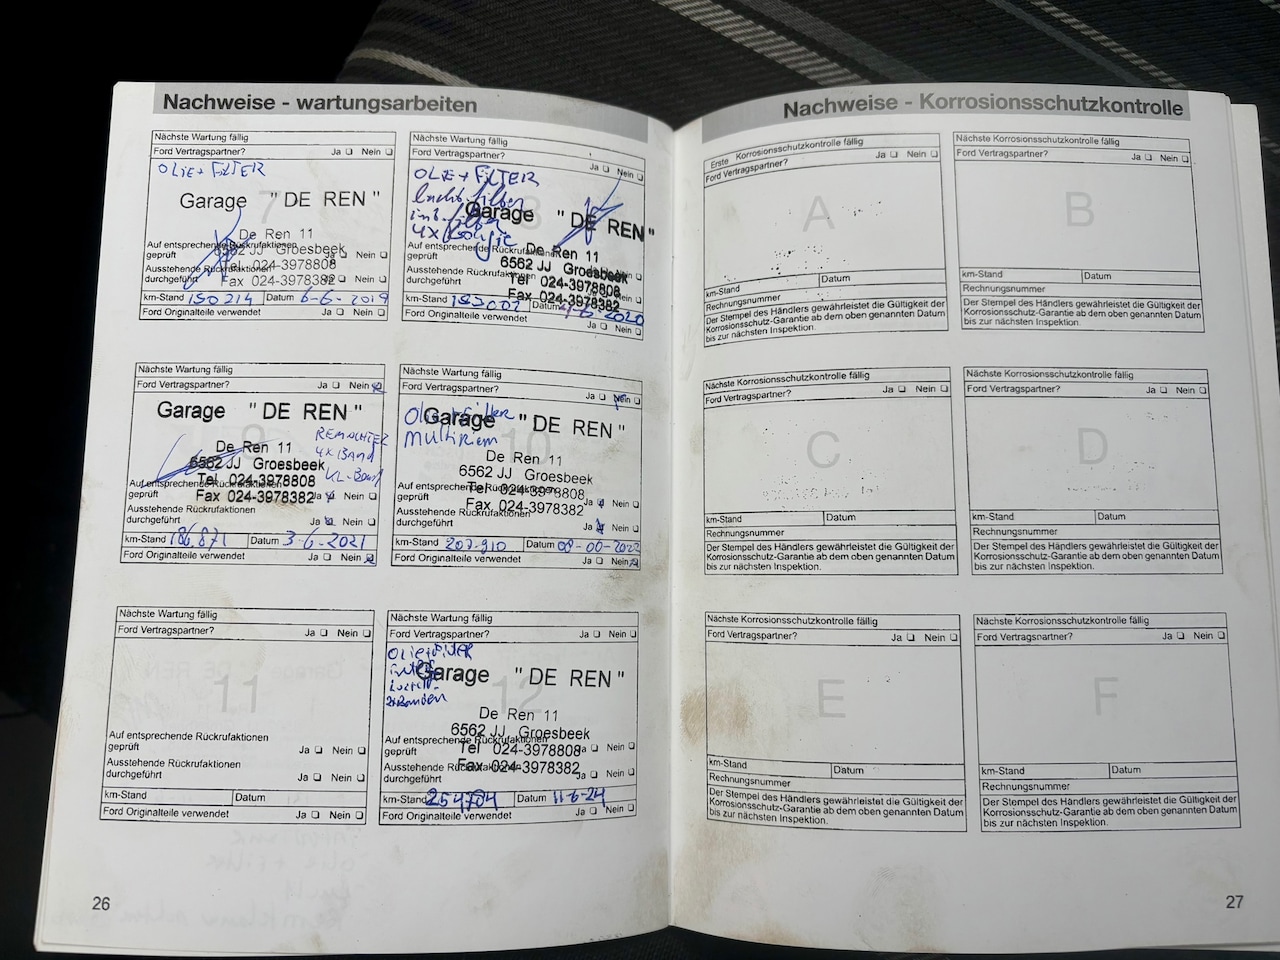 Nachweise - wartungsarbeiten
Nächste Wartung fällig
Ford Vertragspartner? Ja Nein
OLIE + FILTER
7
Garage "DE REN"
De Ren 11
6562 JJ Groesbeek
Tel 024-3978808
Fax 024-3978382
Auf entsprechende Rückrufaktionen
geprüft Ja Nein
Ausstehende Rückrufaktionen
durchgeführt Ja Nein
km-Stand 150214 Datum 6-6-2019
Ford Originalteile verwendet
Nächste Wartung fällig
Ford Vertragspartner? Ja Nein
OLIE + FILTER
8
4x
Garage "DE REN"
De Ren 11
6562 JJ Groesbeek
Tel 024-3978808
Fax 024-3978382
Auf entsprechende Rückrufaktionen
geprüft
Ausstehende Rückrufaktionen
durchgeführt Nein
km-Stand Datum 2020
Ford Originalteile verwendet Ja Nein
Nächste Wartung fällig
Ford Vertragspartner? Ja Nein
9
Garage "DE REN"
De Ren 11
6562 JJ Groesbeek
Tel 024-3978808
Fax 024-3978382
4x BAND
Auf entsprechende Rückrufaktionen
geprüft Ja Nein
Ausstehende Rückrufaktionen
durchgeführt Ja Nein
km-Stand 186.871 Datum 3-6-2021
Ford Originalteile verwendet Ja Nein
Nächste Wartung fällig
Ford Vertragspartner? Ja Nein
Olie + Filter
Multiriem
10
Garage "DE REN"
De Ren 11
6562 JJ Groesbeek
Tel 024-3978808
Fax 024-3978382
Auf entsprechende Rückrufaktionen
geprüft Ja Nein
Ausstehende Rückrufaktionen
durchgeführt Ja Nein
km-Stand 207-910 Datum 2022
Ford Originalteile verwendet Ja Nein
Nächste Wartung fällig
Ford Vertragspartner? Ja Nein
11
Auf entsprechende Rückrufaktionen
geprüft Ja Nein
Ausstehende Rückrufaktionen
durchgeführt Ja Nein
km-Stand Datum
Ford Originalteile verwendet Ja Nein
Nächste Wartung fällig
Ford Vertragspartner? Ja Nein
OLIE + FILTER
12
Garage "DE REN"
De Ren 11
6562 JJ Groesbeek
Tel 024-3978808
Fax 024-3978382
Auf entsprechende Rückrufaktionen
geprüft Ja Nein
Ausstehende Rückrufaktionen
durchgeführt Ja Nein
km-Stand 254704 Datum 11-6-24
Ford Originalteile verwendet Ja Nein
26
Nachweise - Korrosionsschutzkontrolle
Erste Korrosionsschutzkontrolle fällig
Ford Vertragspartner? Ja Nein
A
km-Stand Datum
Rechnungsnummer
Der Stempel des Händlers gewährleistet die Gültigkeit der
Korrosionsschutz-Garantie ab dem oben genannten Datum
bis zur nächsten Inspektion.
Nächste Korrosionsschutzkontrolle fällig
Ford Vertragspartner? Ja Nein
B
km-Stand Datum
Rechnungsnummer
Der Stempel des Händlers gewährleistet die Gültigkeit der
Korrosionsschutz-Garantie ab dem oben genannten Datum
bis zur nächsten Inspektion.
Nächste Korrosionsschutzkontrolle fällig
Ford Vertragspartner? Ja Nein
C
km-Stand Datum
Rechnungsnummer
Der Stempel des Händlers gewährleistet die Gültigkeit der
Korrosionsschutz-Garantie ab dem oben genannten Datum
bis zur nächsten Inspektion.
Nächste Korrosionsschutzkontrolle fällig
Ford Vertragspartner? Ja Nein
D
km-Stand Datum
Rechnungsnummer
Der Stempel des Händlers gewährleistet die Gültigkeit der
Korrosionsschutz-Garantie ab dem oben genannten Datum
bis zur nächsten Inspektion.
Nächste Korrosionsschutzkontrolle fällig
Ford Vertragspartner? Ja Nein
E
km-Stand Datum
Rechnungsnummer
Der Stempel des Händlers gewährleistet die Gültigkeit der
Korrosionsschutz-Garantie ab dem oben genannten Datum
bis zur nächsten Inspektion.
Nächste Korrosionsschutzkontrolle fällig
Ford Vertragspartner? Ja Nein
F
km-Stand Datum
Rechnungsnummer
Der Stempel des Händlers gewährleistet die Gültigkeit der
Korrosionsschutz-Garantie ab dem oben genannten Datum
bis zur nächsten Inspektion.
27